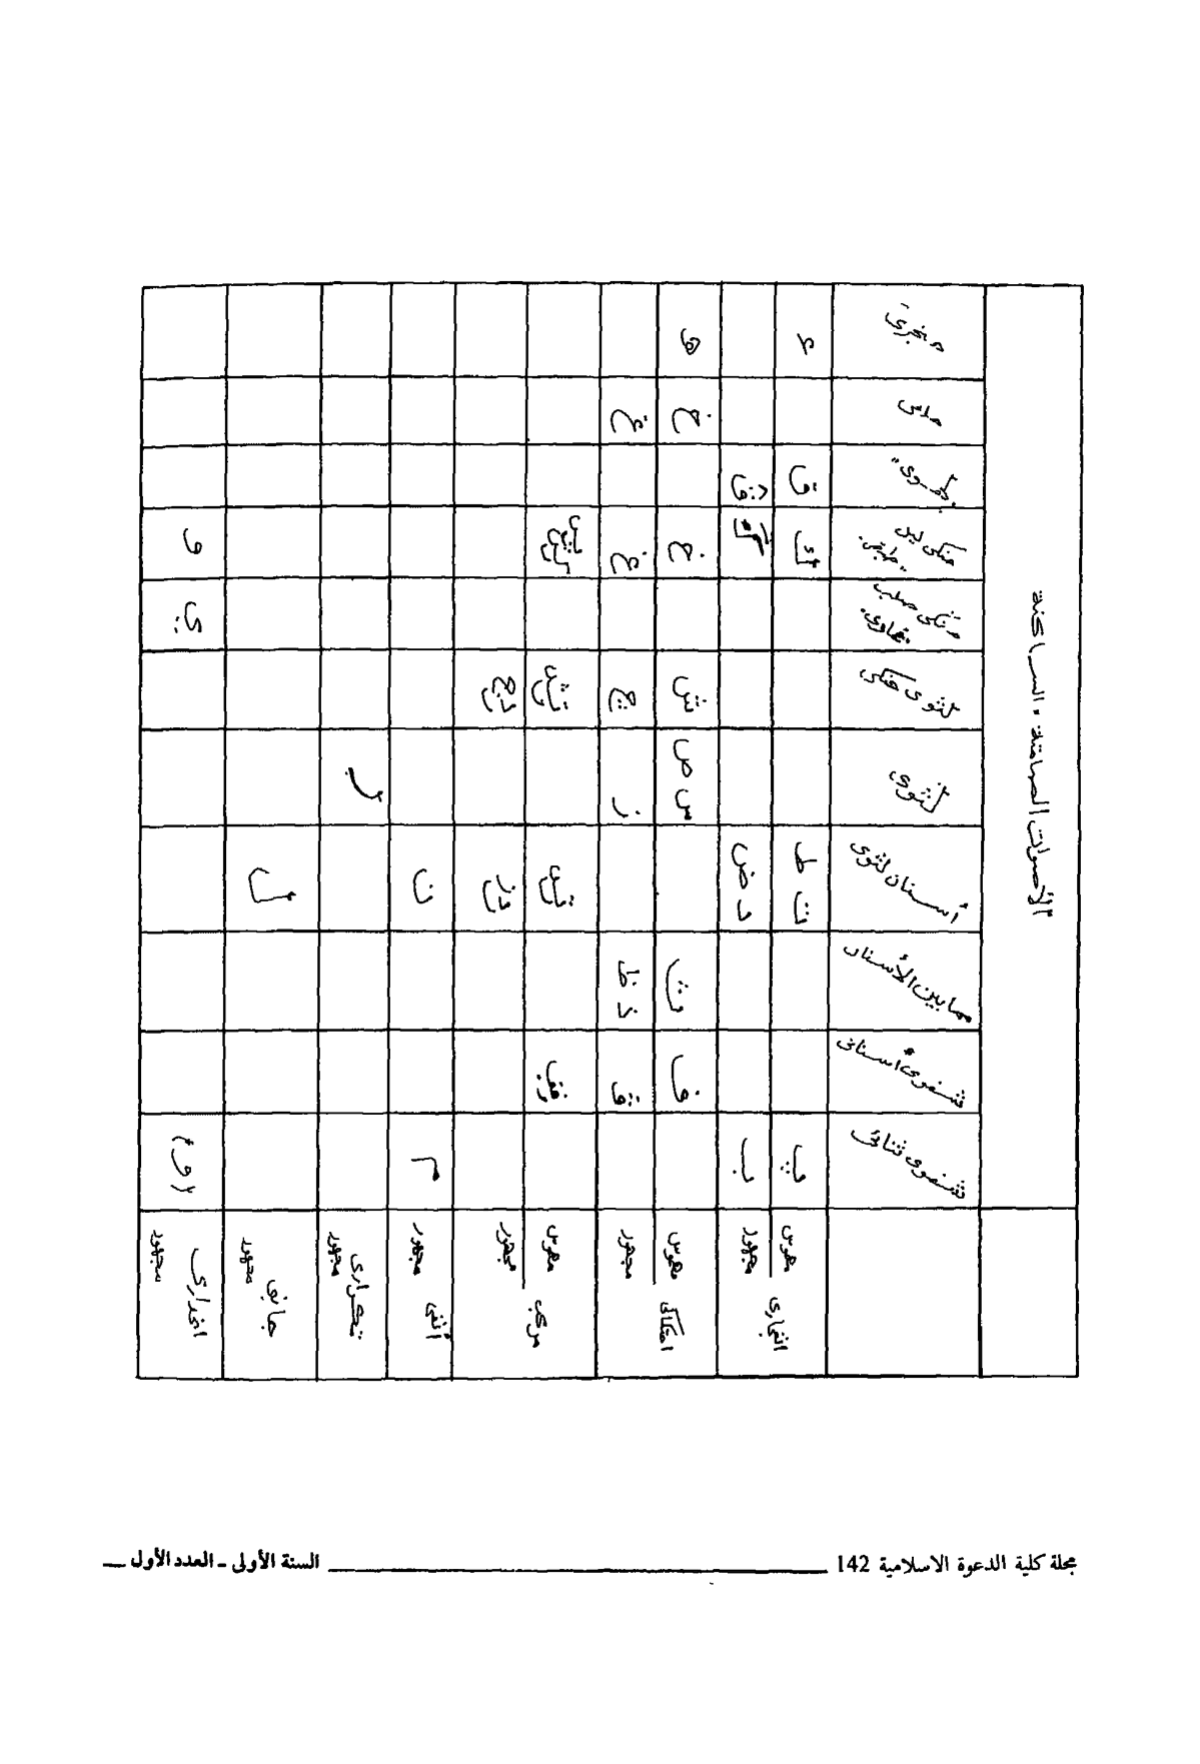 الأصوات الصامتة "الساكنة"
شفوى ثنائى
شفوى أسنانى
مابين الأسنان
أسنان لثوى
لثوى
لثوى حنكى
حنكى صلب
حنكى لين "طبقى"
"لهوى"
حلقى
حنجرى
انفجارى
مهموس
پ
ت ط
ك
ق
ء
مجهور
ب
د ض
احتكاكى
مهموس
ف
ث
س ص
ش
خ
هـ
مجهور
ڤ
ذ ظ
ز
چ
غ
ع
مركب
مهموس
تس
تش
مجهور
دز
دچ
أنفى
مجهور
م
ن
تكرارى
مجهور
ر
جانبى
مجهور
ل
انحدارى
مجهور
(و)
ي
و
مجلة كلية الدعوة الاسلامية 142 السنة الأولى - العدد الأول